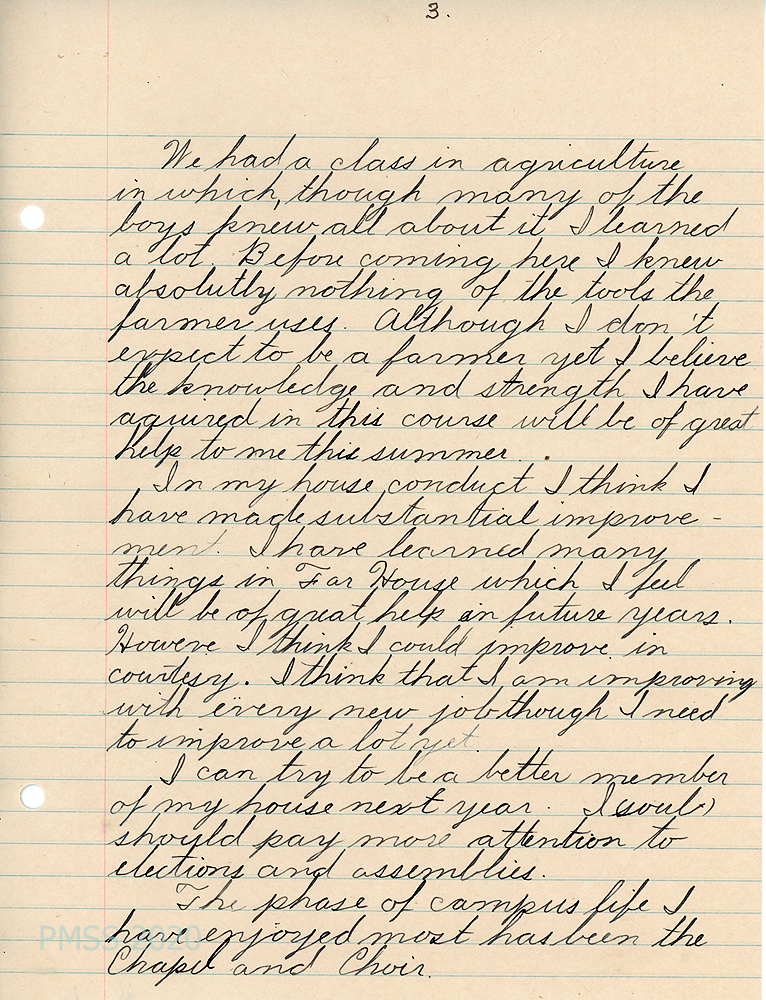 3.
We had a class in agriculture
in which, though many of the
boys knew all about it I learned
a lot. Before coming here I knew
absolutly nothing of the tools the
farmer uses. Although I don't
expect to be a farmer yet I believe
the knowledge and strength I have
aquired in this course will be of great
help to me this summer.
In my house conduct I think I
have made substantial improve-
ment. I have learned many
things in Far House which I feel
will be of great help in future years.
Howere I think I could improve in
courtesy. I think that I am improving
with every new job though I need
to improve a lot yet.
I can try to be a better member
of my house next year. I (soul)
should pay more attention to
elections and assemblies.
The phase of campus life I
have enjoyed most has been the
Chapel and Choir.
PMSS 2020